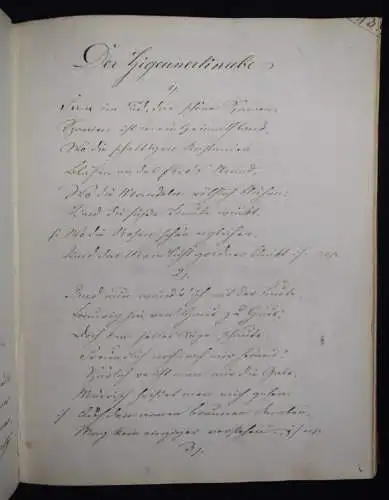 Der Zigeunerknabe
1)
Fern im Süd, das schöne Spanien,
Spanien ist mein Heimathland,
Wo die schattigen Kastanien
Blühen an des Ebro's Strand,
Wo die Mandeln röthlich blühen;
Und die süße Traube winkt.
|: Wo die Rosen schön erglühen,
Und das Mondlicht goldner blinkt :|
2).
Und nun wandr' ich mit der Laute
Traurig hier von Haus zu Haus.
Doch kein helles Auge schaute
Freundlich noch nach mir heraus.
Spärlich reicht man mir die Gabe,
Mürrisch heißet man mich gehen.
|: Ach den armen braunen Knaben,
Mag kein einziger verstehen :|
3).